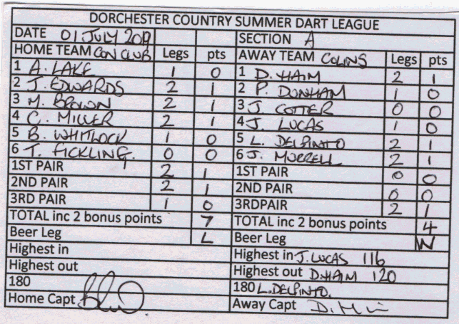 DORCHESTER COUNTRY SUMMER DART LEAGUE
DATE 01 JULY 2019 SECTION A
HOME TEAM CON CLUB Legs pts AWAY TEAM COLINS Legs pts
1 A. LAKE 1 0 1 D. HAIM 2 1
2 J. EDWARDS 2 1 2 P. DONHAM 1 0
3 M. BROWN 2 1 3 J COTTER 0 0
4 C. MILLER 2 1 4 J. LUCAS 1 0
5 B. WHITLOCK 1 0 5 L. DELPINTO 2 1
6 T. FICKLING. 0 0 6 J. MURRELL 2 1
1ST PAIR 2 1 1ST PAIR 0 0
2ND PAIR 2 1 2ND PAIR 0 0
3RD PAIR 1 0 3RDPAIR 2 1
TOTAL inc 2 bonus points 7 TOTAL inc 2 bonus points 4
Beer Leg L Beer Leg W
Highest in Highest in J. LUCAS 116
Highest out Highest out D.HAIM 120
180 180 L. DELPINTO.
Home Capt Away Capt